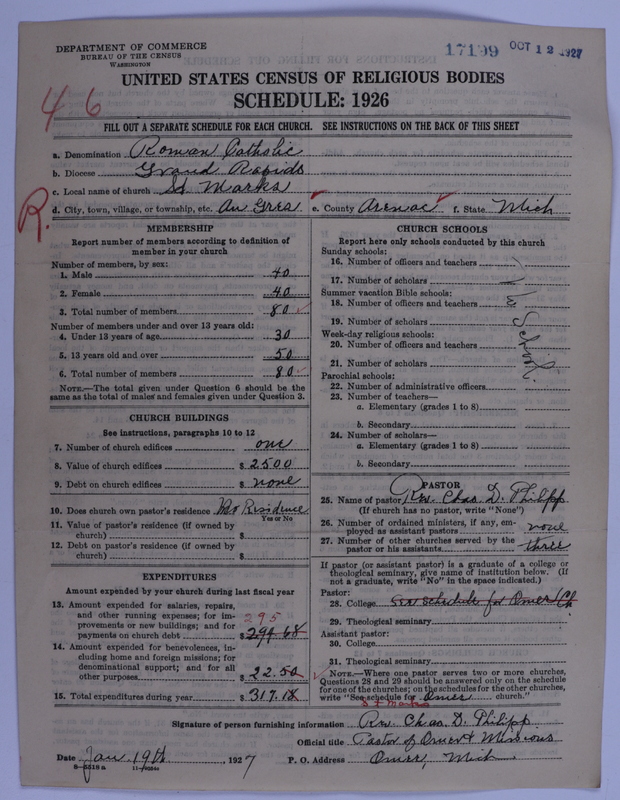 DEPARTMENT OF COMMERCE
BUREAU OF THE CENSUS
WASHINGTON
17199 OCT 12 1927
UNITED STATES CENSUS OF RELIGIOUS BODIES
SCHEDULE: 1926
46
FILL OUT A SEPARATE SCHEDULE FOR EACH CHURCH. SEE INSTRUCTIONS ON THE BACK OF THIS SHEET
R.
a. Denomination Roman Catholic
b. Diocese Grand Rapids
c. Local name of church St Marks
d. City, town, village, or township, etc. Au Gres e. County Arenac f. State Mich
MEMBERSHIP
Report number of members according to definition of
member in your church
Number of members, by sex:
1. Male 40
2. Female 40
3. Total number of members 80
Number of members under and over 13 years old:
4. Under 13 years of age 30
5. 13 years old and over 50
6. Total number of members 80
NOTE.—The total given under Question 6 should be
same as the total of males and females given under Question 3.
CHURCH BUILDINGS
See instructions, paragraphs 10 to 12
7. Number of church edifices one
8. Value of church edifices $ 2500
9. Debt on church edifices $ none
10. Does church own pastor's residence No Residence
Yes or No
11. Value of pastor's residence (if owned by
church) $
12. Debt on pastor's residence (if owned by
church) $
EXPENDITURES
Amount expended by your church during last fiscal year
13. Amount expended for salaries, repairs,
and other running expenses; for im-
provements or new buildings; and for
payments on church debt $ 294 68
295
14. Amount expended for benevolences, in-
cluding home and foreign missions; for
denominational support; and for all
other purposes $ 22.50
15. Total expenditures during year $ 317.18
CHURCH SCHOOLS
Report here only schools conducted by this church
Sunday schools:
16. Number of officers and teachers
17. Number of scholars
Summer vacation Bible schools:
18. Number of officers and teachers
19. Number of scholars
Week-day religious schools:
20. Number of officers and teachers
21. Number of scholars
No School.
Parochial schools:
22. Number of administrative officers
23. Number of teachers—
a. Elementary (grades 1 to 8)
b. Secondary
24. Number of scholars—
a. Elementary (grades 1 to 8)
b. Secondary
PASTOR
25. Name of pastor Rev. Chas. D. Philipp
(If church has no pastor, write "None")
26. Number of ordained ministers, if any, em-
ployed as assistant pastors none
27. Number of other churches served by the
pastor or his assistants three
If pastor (or assistant pastor) is a graduate of a college or
theological seminary, give name of institution below. (If
not a graduate, write "No" in the space indicated.)
Pastor:
28. College See schedule for Omer Ch.
29. Theological seminary
Assistant pastor:
30. College
31. Theological seminary
NOTE.—Where one pastor serves two or more churches,
Questions 28 and 29 should be answered only on the schedule
for one of the churches; on the schedules for the other churches,
write "See schedule for Omer church."
St Marks
Signature of person furnishing information Rev. Chas. D. Philipp
Official title Pastor of Omer & Missions
Date Jan 19th, 1927 P. O. Address Omer, Mich